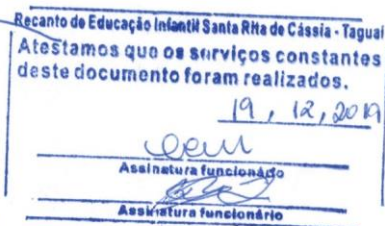 Recanto de Educação Infantil Santa Rita de Cássia - Taguaí
Atestamos que os serviços constantes
deste documento foram realizados.
19, 12, 2019
Assinatura funcionário
Assinatura funcionário